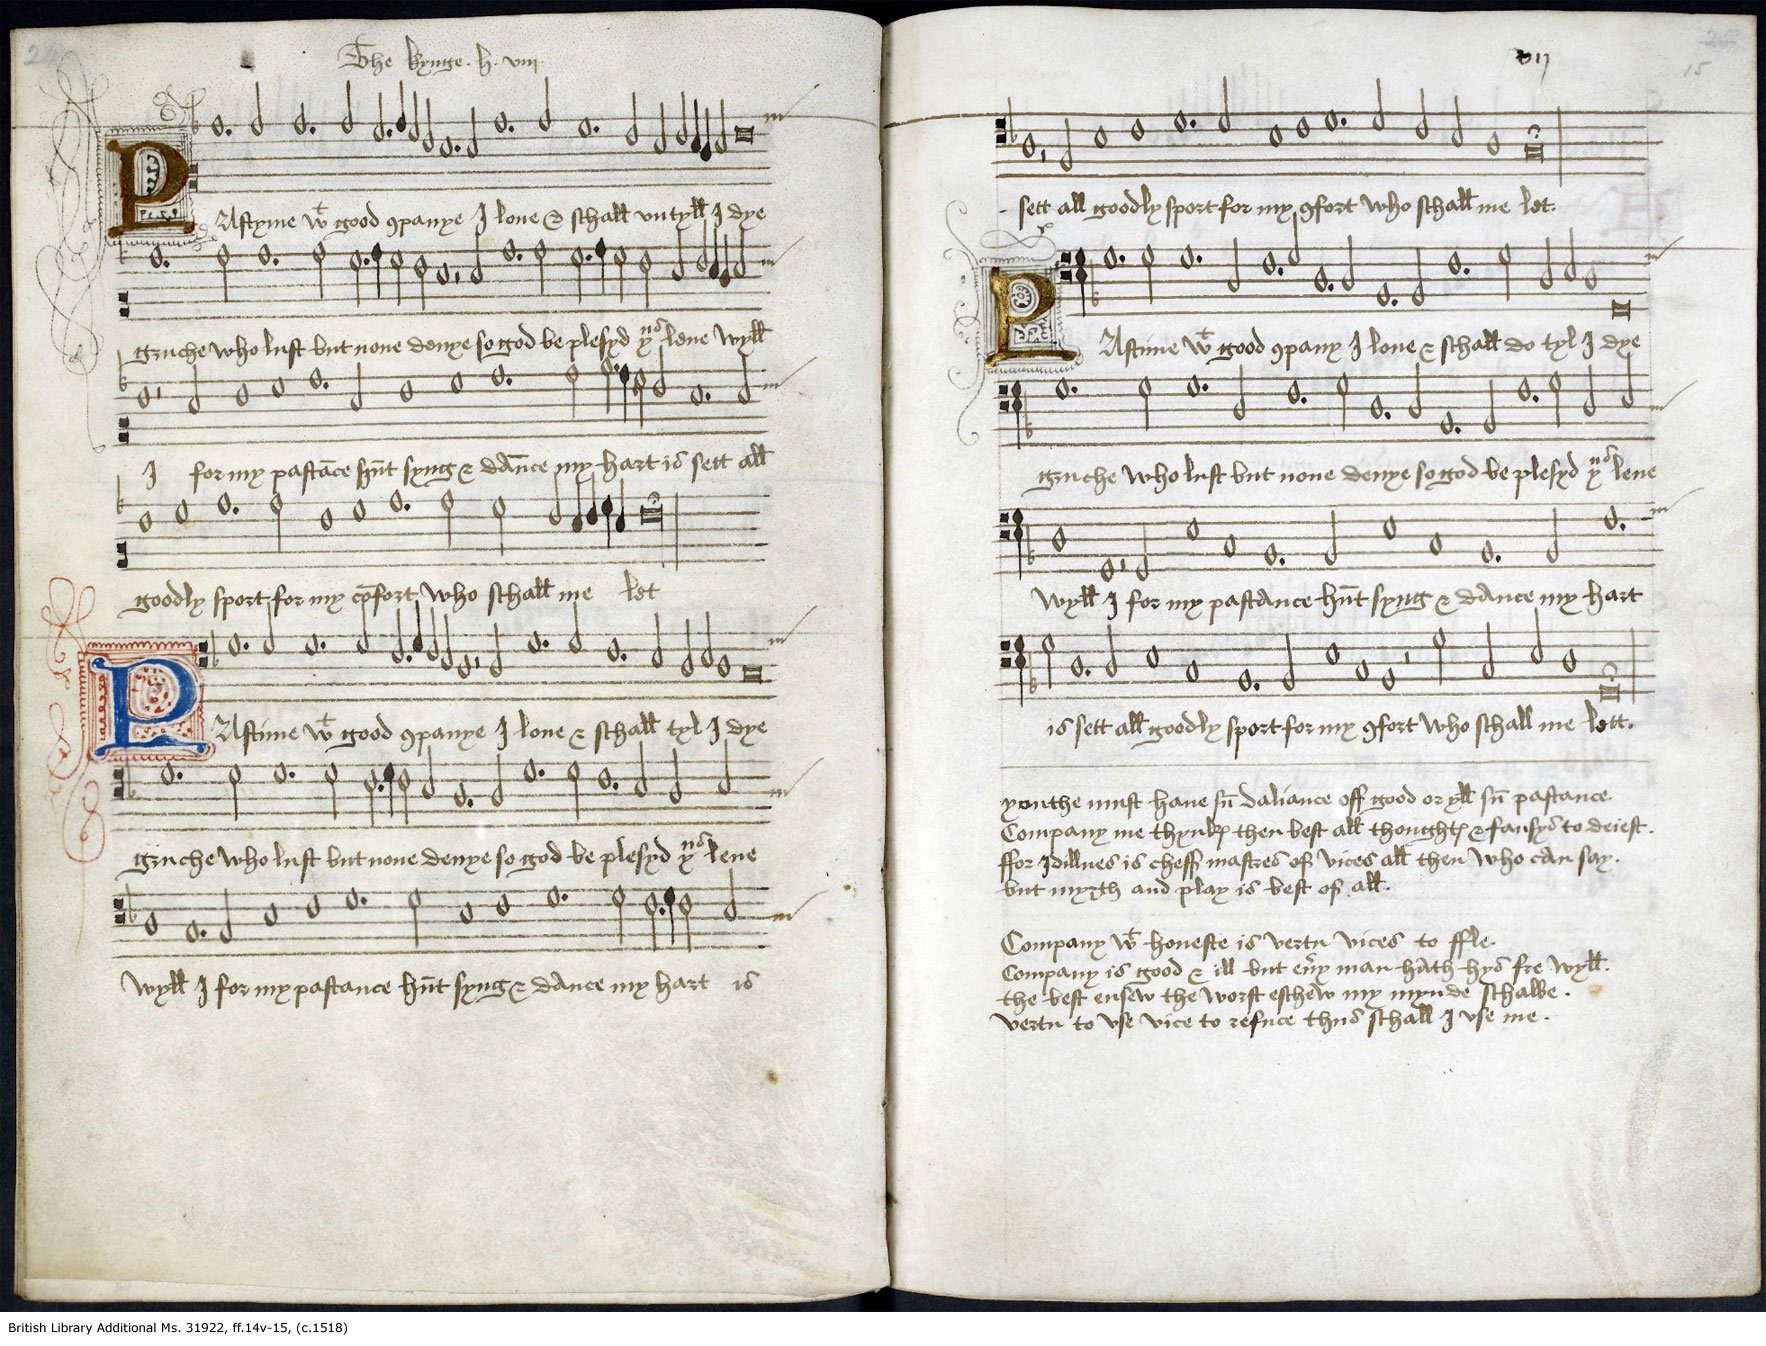 The kynge .h. viii
PAstyme wt good 9panye I loue & schall vntyll I dye
gruche who lust but none denye so god be plesyd þus leue wyll
I for my pastāce hūt syng & dāce my hart is sett all
goodly sport for my cōfort who schall me let
PAstime wt good 9panye I loue & schall tyl I dye
gruche who lust but none denye so god be plesyd þus leue
wyll I for my pastance hūt syng & dance my hart is
15
sett all goodly sport for my 9fort who schall me let.
PAstime wt good 9pany I loue & schall do tyl I dye
gruche who lust but none denye so god be plesyd þus leue
wyll I for my pastance hūt syng & dance my hart
is sett all goodly sport for my 9fort who schall me lett.
youthe must haue sū daliance off good or yll sū pastance.
Company me thynkꝭ then best all thoughtꝭ & fansys to deiest.
ffor Idillnes is cheff mastres of vices all then who can say.
but myrth and play is best of all.
Company wt honeste is vertu vices to ffle.
Company is good & ill but eu̾y man hath hys fre wyll.
the best ensew the worst eschew my mynde schalbe .
vertu to vse vice to refuce thus schall I vse me .
British Library Additional Ms. 31922, ff.14v-15, (c.1518)